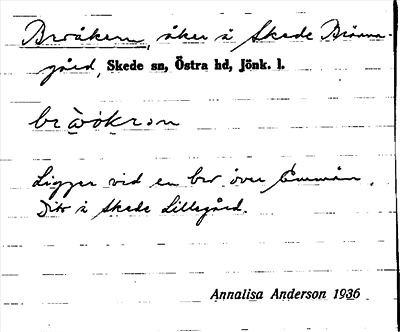 Broåkern, åker å Skede Bränna-
gård, Skede sn, Östra hd, Jönk. l.
Ligger vid en bro över Emmån.
Dito å Skede Lillegård.
Annalisa Anderson 1936